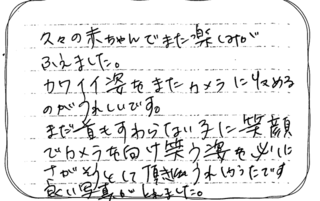 久々の赤ちゃんでまた楽しみが
ふえました。
カワイイ姿をまたカメラに収める
のがうれしいです。
まだ首もすわらない子に笑顔
でカメラを向け笑う姿を必に
さがそうとして頂き
うれしかったです
良い写真がとれました。